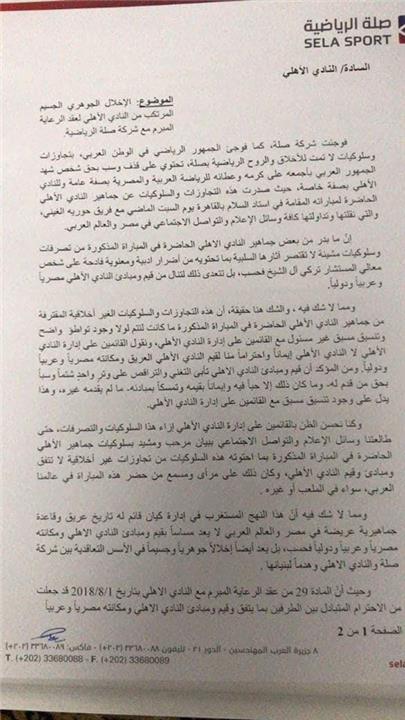 صلة الرياضية
SELA SPORT
السادة/ النادي الأهلي
الموضوع: الإخلال الجوهري الجسيم
المرتكب من النادي الأهلي لعقد الرعاية
المبرم مع شركة صلة الرياضية.
فوجئت شركة صلة، كما فوجئ الجمهور الرياضي في الوطن العربي، بتجاوزات
وسلوكيات لا تمت للأخلاق والروح الرياضية بصلة، تحتوي على قذف وسب بحق شخص شهد
الجمهور العربي بأجمعه على كرمه وعطائه للرياضة العربية والمصرية بصفة عامة وللنادي
الأهلي بصفة خاصة، حيث صدرت هذه التجاوزات والسلوكيات عن جماهير النادي الأهلي
الحاضرة لمباراته المقامة في استاد السلام بالقاهرة يوم السبت الماضي مع فريق حوريه الغيني،
والتي نقلتها وتداولتها كافة وسائل الإعلام والتواصل الاجتماعي في مصر والعالم العربي.
إنّ ما بدر من بعض جماهير النادي الأهلي الحاضرة في المباراة المذكورة من تصرفات
وسلوكيات مشينة لا تقتصر آثارها السلبية بما تحتويه من أضرار ادبية ومعنوية فادحة على شخص
معالي المستشار تركي آل الشيخ فحسب، بل تتعدى ذلك لتنال من قيم ومبادئ النادي الأهلي مصرياً
وعربياً ودولياً.
ومما لا شك فيه ، والشك هنا حقيقة، أن هذه التجاوزات والسلوكيات الغير أخلاقية المقترفة
من جماهير النادي الأهلي الحاضرة في المباراة المذكورة ما كانت لتتم لولا وجود تواطؤ واضح
وتنسيق مسبق غير مسئول مع القائمين على إدارة النادي الأهلي، ونقول القائمين على إدارة النادي
الأهلي لا النادي الأهلي إيماناً واحتراماً منا لقيم النادي الأهلي العريق ومكانته مصرياً وعربياً
ودولياً. ومن المؤكد أن قيم ومبادئ النادي الأهلي تأبى التغني والتراقص على وتر واحدٍ شتماً وسباً
بحق من قدم له. وما كان ذلك إلا حباً فيه وإيماناً بقيمه وتمسكاً بمبادئه. ما لم يقدمه غيره، وهذا
يدل على وجود تنسيق مسبق مع القائمين على إدارة النادي الأهلي.
وكنا نحسن الظن بالقائمين على إدارة النادي الأهلي إزاء هذا السلوكيات والتصرفات، حتى
طالعتنا وسائل الإعلام والتواصل الاجتماعي ببيان مرحب ومشيد بسلوكيات جماهير الأهلي
الحاضرة في المباراة المذكورة بما احتوته هذه السلوكيات من تجاوزات غير أخلاقية لا تتفق
ومبادئ وقيم النادي الأهلي، وكان ذلك على مرأى ومسمع من حضر هذه المباراة في عالمنا
العربي، سواء في الملعب أو غيره .
ومما لا شك فيه أنّ هذا النهج المستغرب في إدارة كيان قائم له تاريخ عريق وقاعدة
جماهيرية عريضة في مصر والعالم العربي لا يعد مساساً بقيم ومبادئ النادي الأهلي ومكانته
مصرياً وعربياً ودولياً فحسب، بل يعد أيضاً إخلالاً جوهرياً وجسيماً في الأسس التعاقدية بين شركة
صلة والنادي الأهلي وهدماً لبنيانها .
وحيث أنّ المادة 29 من عقد الرعاية المبرم مع النادي الأهلي بتاريخ 2018/8/1 قد جعلت
من الاحترام المتبادل بين الطرفين بما يتفق وقيم ومبادئ النادي الأهلي ومكانته مصرياً وعربياً
الصفحة 1 من 2
٨ جزيرة العرب المهندسين - الدور ٢١ - تليفون ٣٣٦٨٠٠٨٨ (٢٠٢+) - فاكس: ٣٣٦٨٠٠٨٩ (٢٠٢+)
T. (+202) 33680088 - F. (+202) 33680089
sela